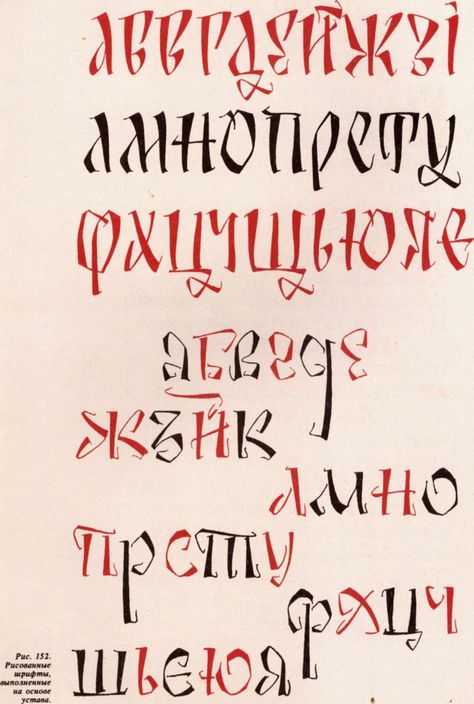 АБВГДЕЙЖЗІ
ЛМНОПРСТУ
ФХЦЧЩЬЮЯЄ
абвгде
жзйк
лмно
прсту
фхцч
шьєюя
Рис. 152.
Рисованные
шрифты,
выполненные
на основе
устава.